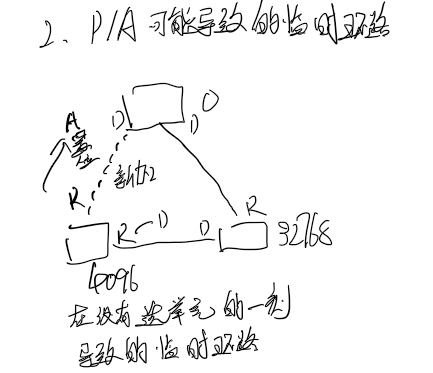 2、P/A可能导致的临时环路
D
0
D
A
置位
新加
R
R
D
D
R
32768
4096
在没有选举完的一刻
导致的临时环路